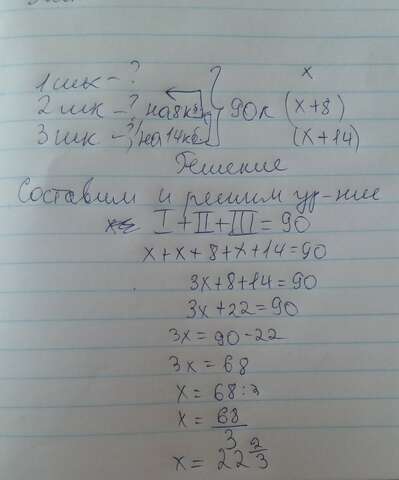 1 шк - ? x
2 шк - ? на 8к б } 90к (x+8)
3 шк - ? на 14к б (x+14)
Решение
Составим и решим ур-ние
I + II + III = 90
x + x + 8 + x + 14 = 90
3x + 8 + 14 = 90
3x + 22 = 90
3x = 90 - 22
3x = 68
x = 68 : 3
x = 68/3
x = 22 2/3